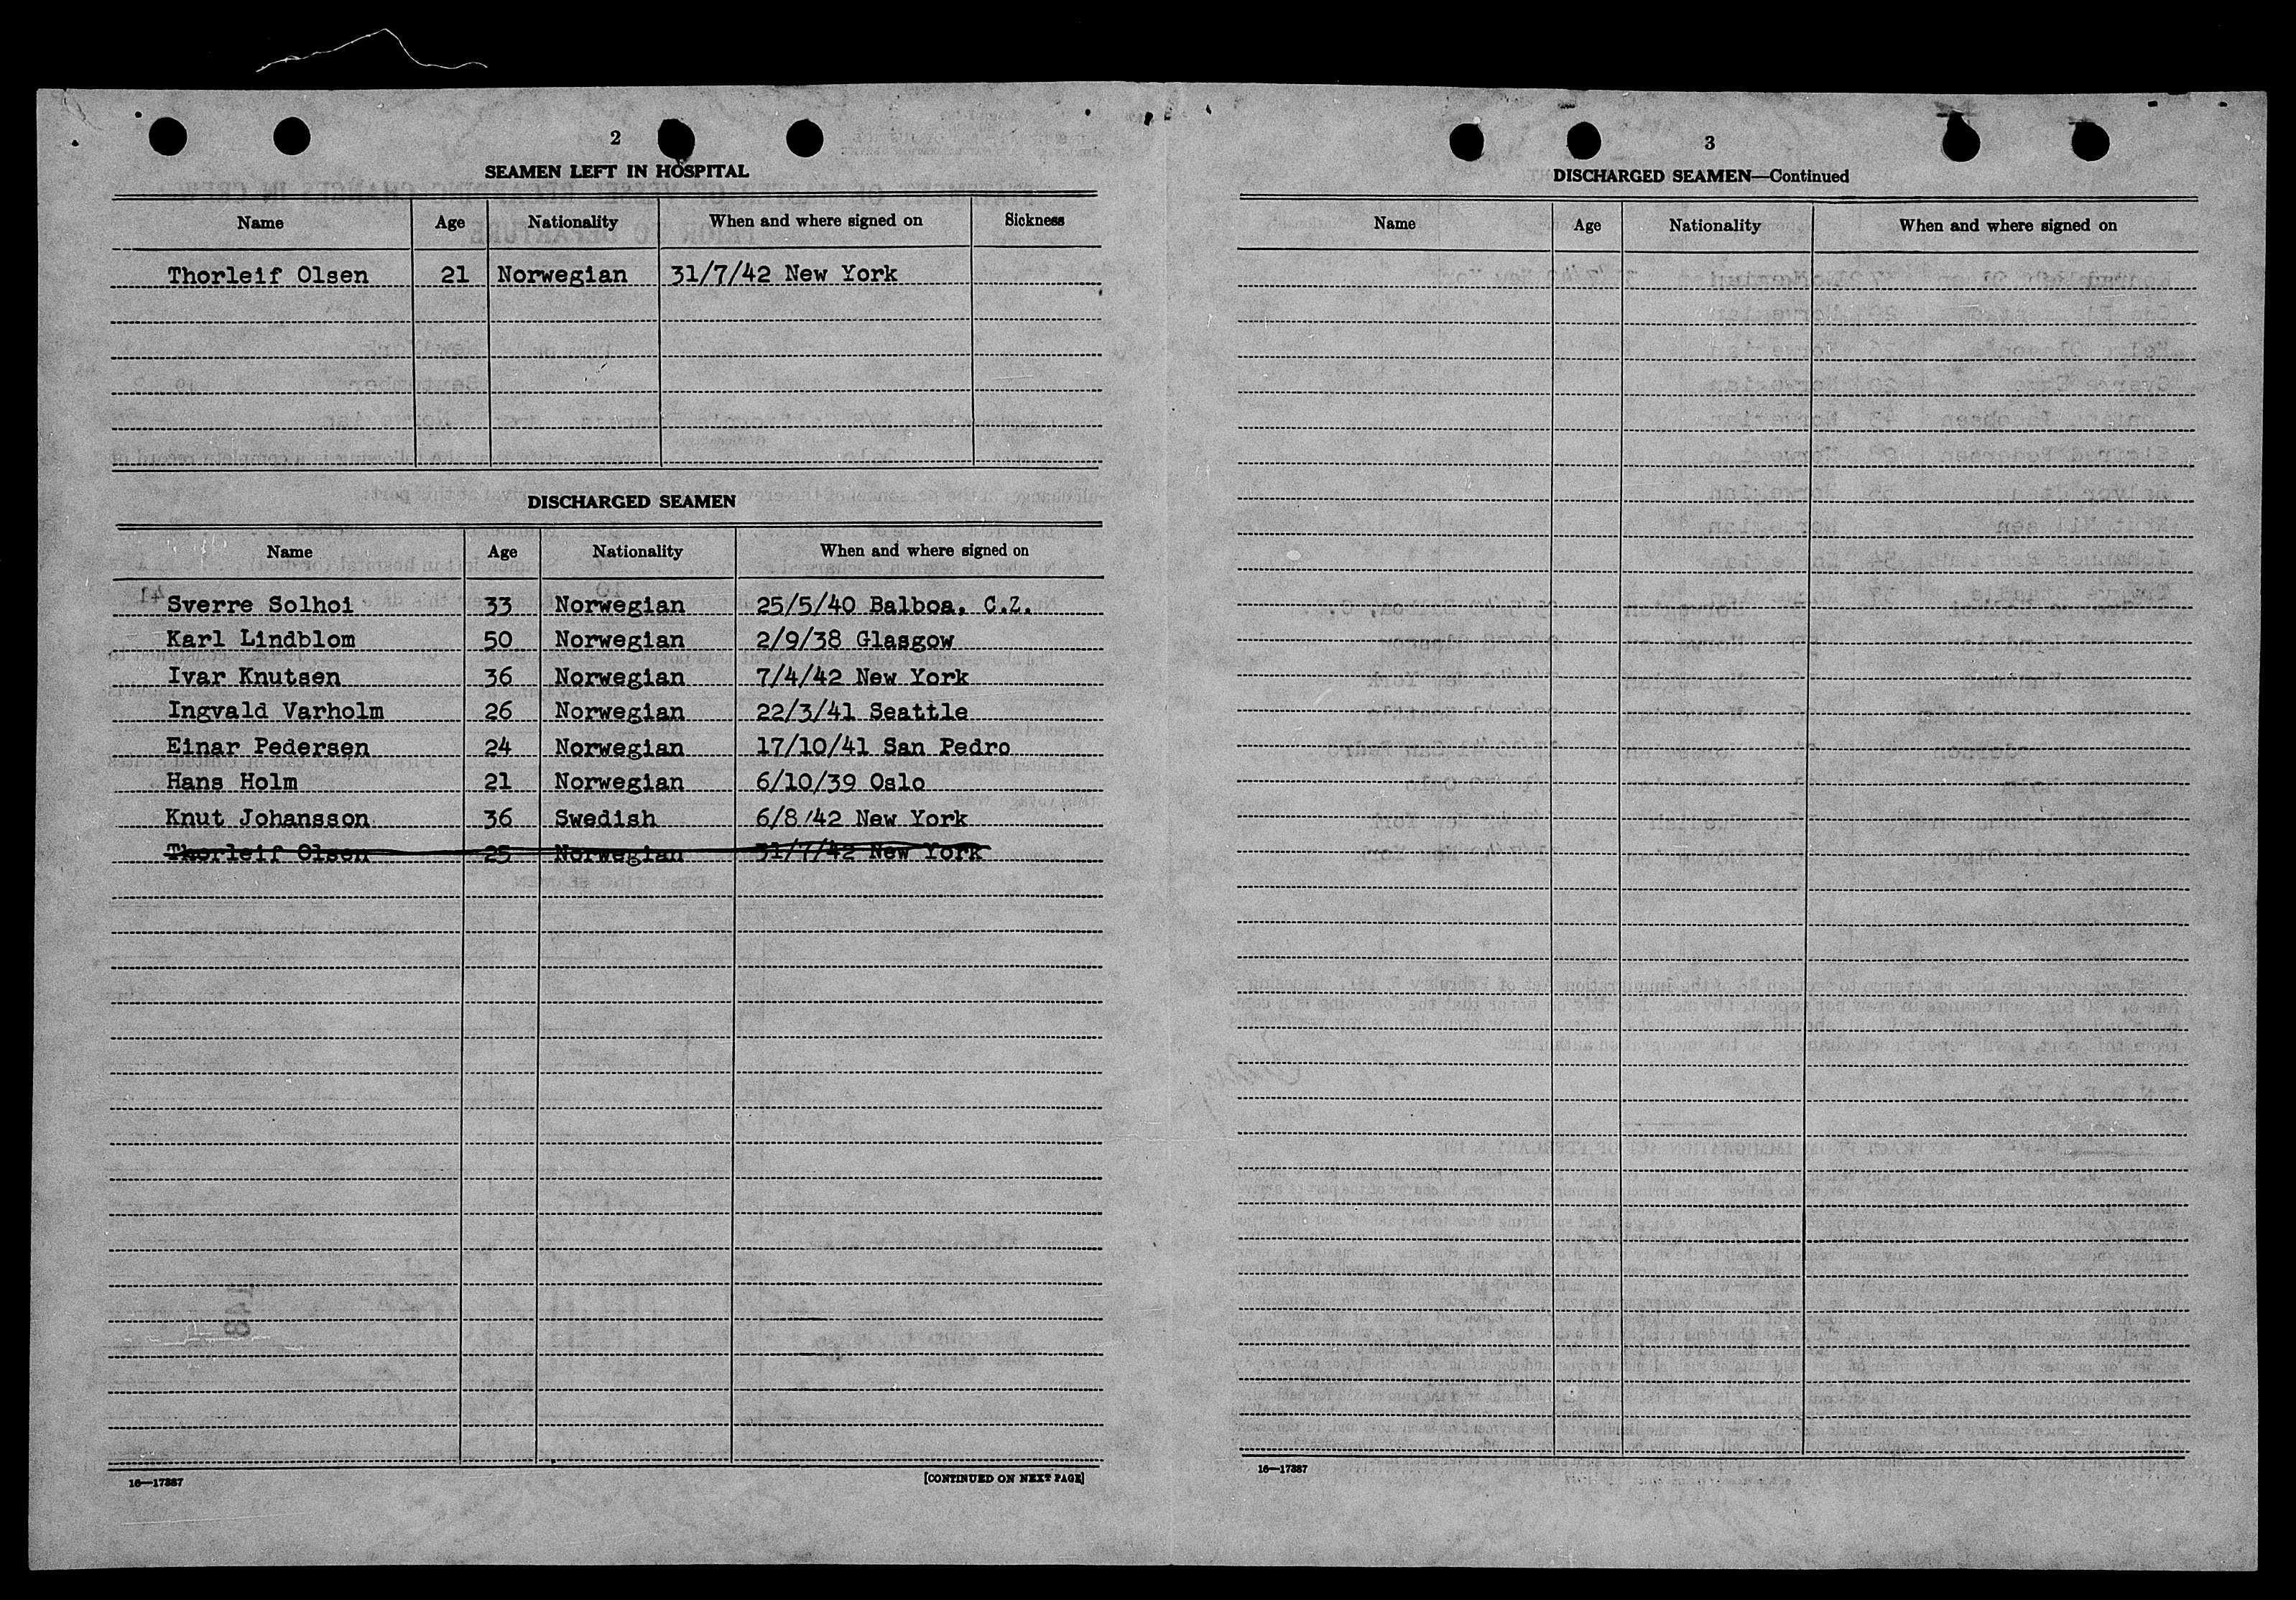 2
SEAMEN LEFT IN HOSPITAL
Name Age Nationality When and where signed on Sickness
Thorleif Olsen 21 Norwegian 31/7/42 New York
DISCHARGED SEAMEN
Name Age Nationality When and where signed on
Sverre Solhoi 33 Norwegian 25/5/40 Balboa, C.Z.
Karl Lindblom 50 Norwegian 2/9/38 Glasgow
Ivar Knutsen 36 Norwegian 7/4/42 New York
Ingvald Varholm 26 Norwegian 22/3/41 Seattle
Einar Pedersen 24 Norwegian 17/10/41 San Pedro
Hans Holm 21 Norwegian 6/10/39 Oslo
Knut Johansson 36 Swedish 6/8/42 New York
Thorleif Olsen 25 Norwegian 31/7/42 New York
16—17387 [CONTINUED ON NEXT PAGE]
3
DISCHARGED SEAMEN—Continued
Name Age Nationality When and where signed on
16—17387